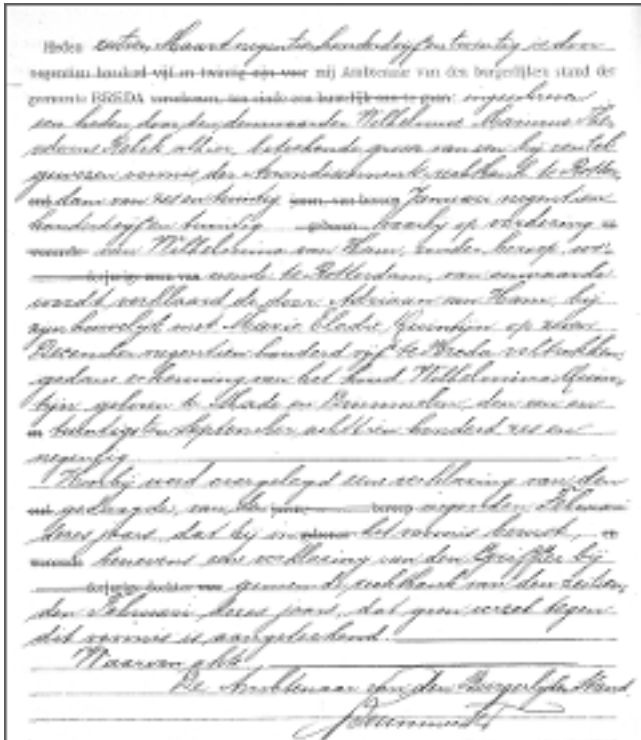 Heden zestien Maart negentienhonderdvijfentwintig is door
negentien honderd vijf en twintig zijn voor mij Ambtenaar van den burgerlijken stand der
gemeente BREDA verschenen, ten einde een huwelijk aan te gaan: ingeschreven
een heden door den deurwaarder Wilhelmus Marinus
alhier, beteekende grosse van een bij verstek
gewezen vonnis der Arrondissements rechtbank te Rotter
dam van zes en twintig jaren, van beroep Januari negentien
honderdvijf en twintig geboren waarbij op vordering
van Wilhelmina van Ham, zonder beroep, wo-
derjarige zoon van nende te Rotterdam, van onwaarde
wordt verklaard de door Adriaan van Ham, bij
zijn huwelijk met Marie Elodie Quintijn op
December negentien honderd vijf te Breda voltrokken,
gedane erkenning van het kind Wilhelmina Quin
tijn geboren te Made en Drimmelen, den een en
twintigsten September achttien honderd zes en
negentig
Hierbij werd overgelegd eene verklaring van den
oud gedaagde, van den jaren, beroep negenden Februari
dezes jaars, dat hij in het vonnis berust,
benevens eene verklaring van den Griffier bij
derjarige dochter van gemelde rechtbank van den tienden
den Februari dezes jaars, dat geen verzet tegen
dit vonnis is aangeteekend.
Waarvan akte
De Ambtenaar van den Burgerlijken Stand